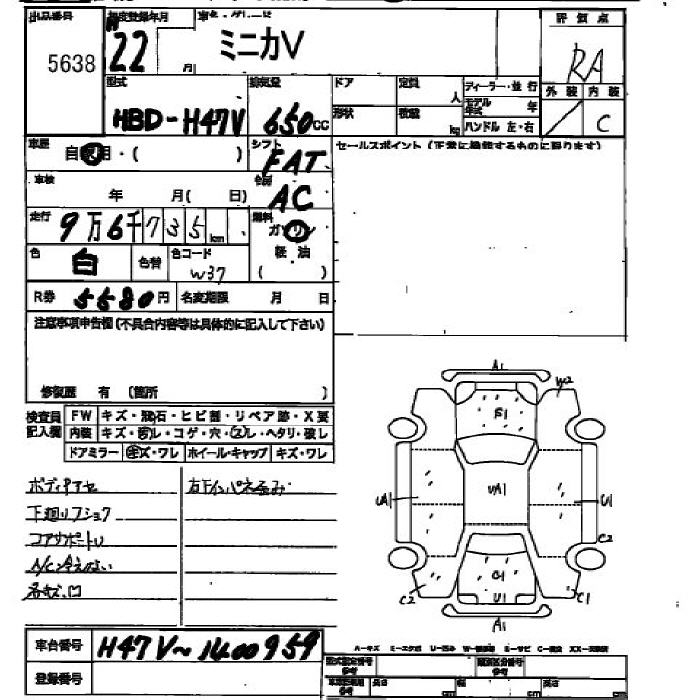 出品番号 初度登録年月 車名・グレード 評価点
5638 H22 月 ミニカV RA
外装 内装
C
型式 排気量 ドア 定員 人 ディーラー・並行
HBD-H47V 650cc 形状 積載 kg モデル年式 年
ハンドル 左・右
車歴 自家用・( ) シフト FAT セールスポイント (正常に機能するものに限ります)
車検 年 月( 日) 冷房 AC
走行 9万6千735km 燃料 ガソリン
軽油
( )
色 白 色替 色コード W37
R券 5580円 名変期限 月 日
注意事項申告欄(不具合内容等は具体的に記入して下さい)
修復歴 有 (箇所 )
検査員記入欄 FW キズ・飛石・ヒビ割・リペア跡・X要
内装 キズ・汚レ・コゲ・穴・スレ・ヘタリ・破レ
ドアミラー キズ・ワレ ホイール・キャップ キズ・ワレ
ボディアセ 右下インパネ歪み
下廻リフショク
コアサポートU
A/C冷えない
各キズ凹
A1
W2
G1
UA1 UA1 U1
C2
G1
U1
C2 C1
A1
車台番号 H47V~1400959
登録番号
A-キズ ミ-エクボ U-凹み W-補修跡 S-サビ C-腐食 XX-交換済
型式指定番号 参考 類別区分番号 参考
長さ cm 幅 cm 高さ cm